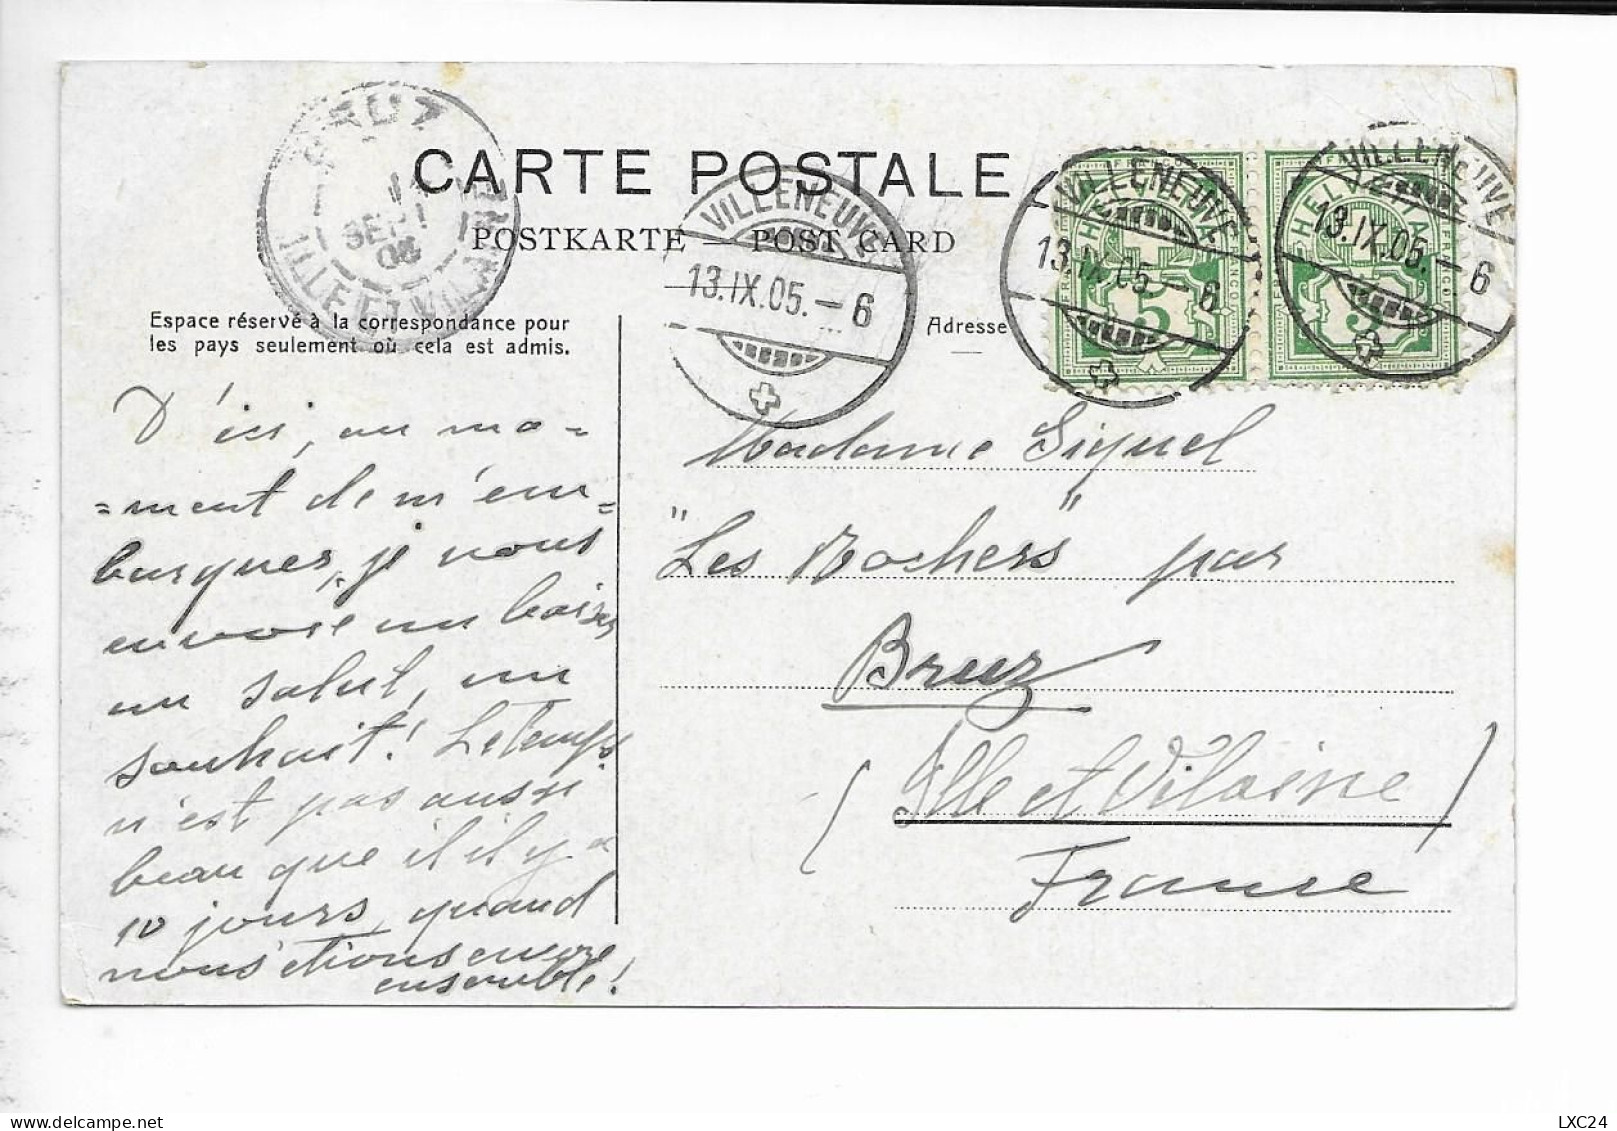 CARTE POSTALE
POSTKARTE — POST CARD
BRUZ
SEPT
05
ILLE ET VILAINE
VILLENEUVE
13.IX.05.–6
VILLENEUVE
13.IX.05.–6
VILLENEUVE
13.IX.05.–6
HELVETIA
FRANCO
5
HELVETIA
FRANCO
5
Espace réservé à la correspondance pour
les pays seulement où cela est admis.
Adresse
D'ici, au mo=
=ment de m'em=
barquer, je vous
envoie un baiser
un salut, un
souhait! Le temps
n'est pas aussi
beau que il il y a
10 jours, quand
nous étions encore
ensemble!
Madame Siquel
"Les Rochers" par
Bruz
(Ille et Vilaine)
France
LXC24